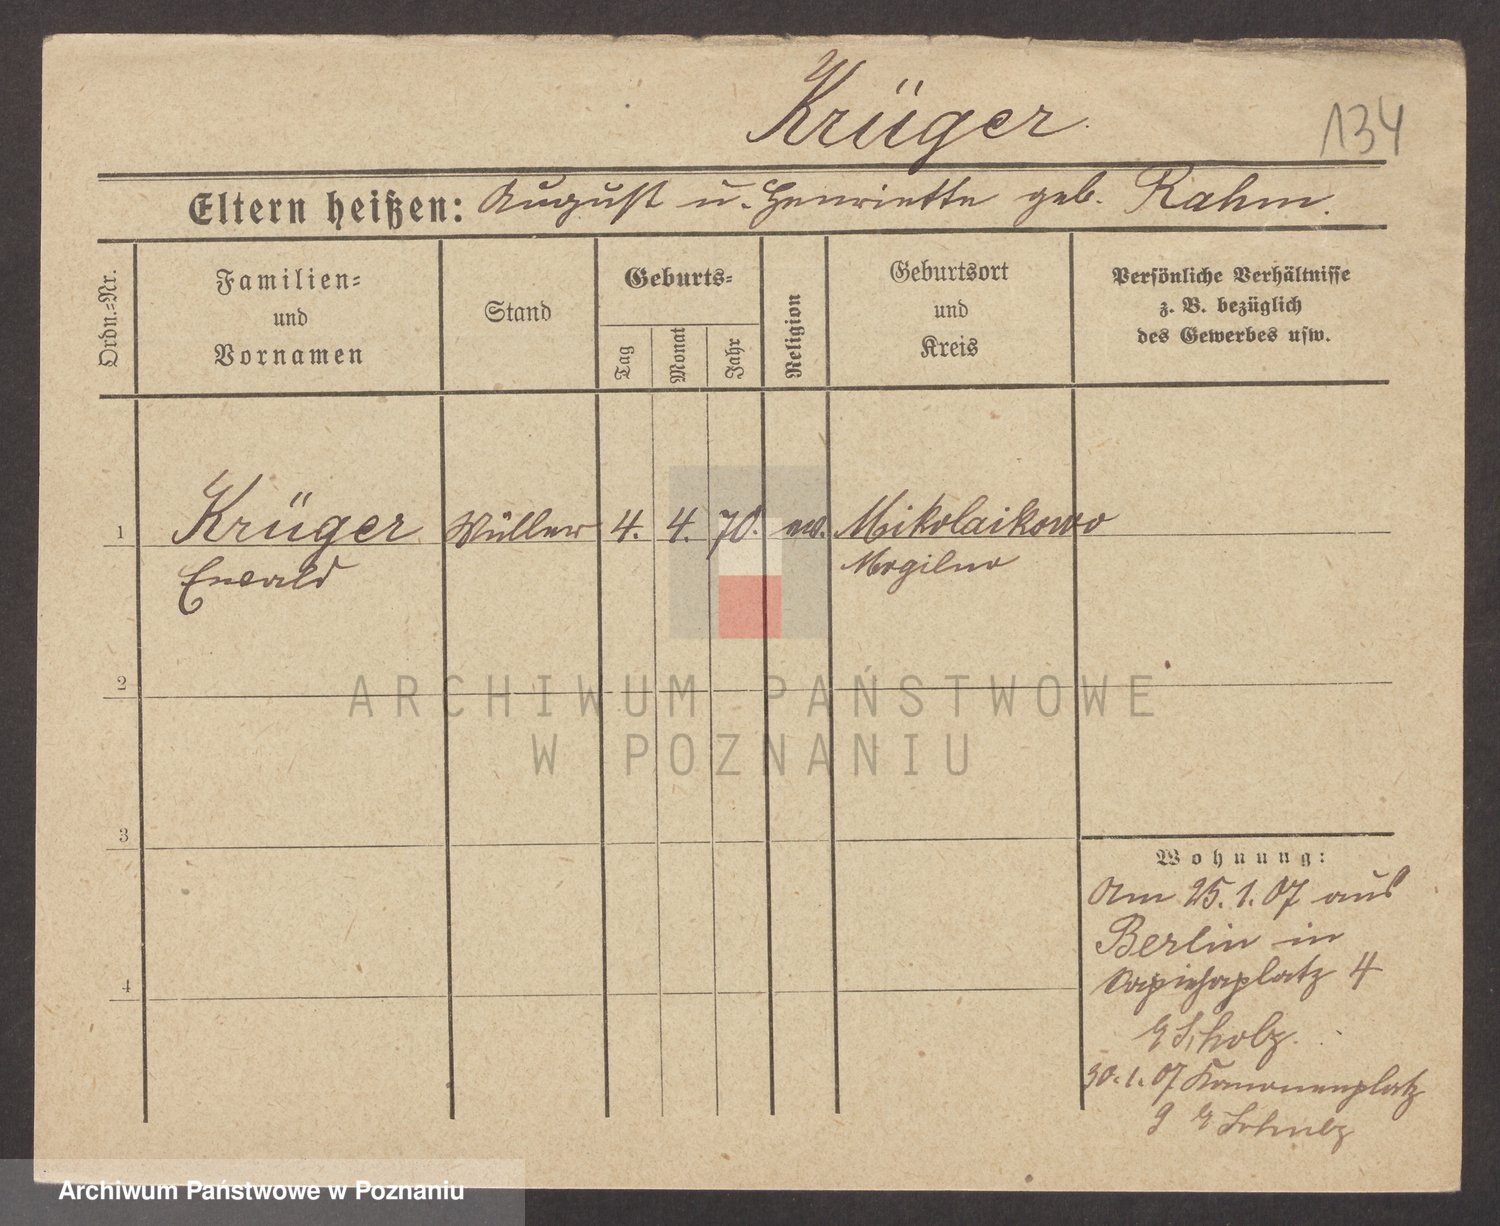 Krüger
134
Eltern heißen: August u. Henriette geb. Rahm.
Ordn.=Nr.
Familien=
und
Vornamen
Stand
Geburts=
Tag
Monat
Jahr
Religion
Geburtsort
und
Kreis
Persönliche Verhältnisse
z. B. bezüglich
des Gewerbes usw.
1 Krüger Müller 4. 4. 70. ev. Mikolaikowo
Ewald Mogilno
2
3
4
Wohnung:
Am 25.1.07 aus
Berlin in
Sapiehaplatz 4
Scholz.
30.1.07 Kanonenplatz
9
ARCHIWUM PAŃSTWOWE
W POZNANIU
Archiwum Państwowe w Poznaniu